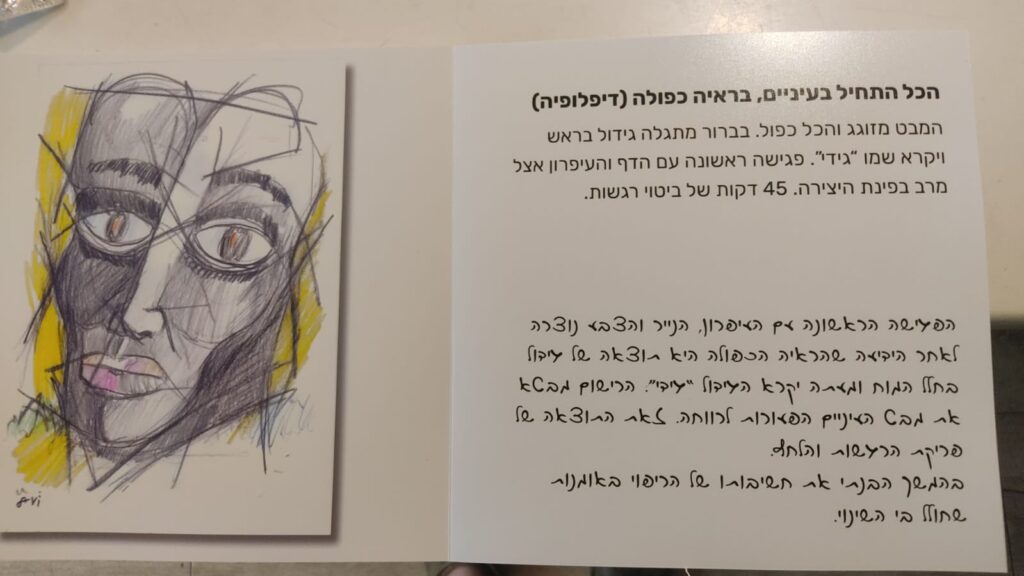 הכל התחיל בעיניים, בראיה כפולה (דיפלופיה)
המבט מזוגג והכל כפול. בברור מתגלה גידול בראש
ויקרא שמו "גידי". פגישה ראשונה עם הדף והעיפרון אצל
מרב בפינת היצירה. 45 דקות של ביטוי רגשות.
הפגישה הראשונה עם העיפרון, הנייר והצבע נוצרה
לאחר הידיעה שהראיה הכפולה היא תוצאה של גידול
בחלל המוח ומעתה יקרא הגידול "גידי". הרישום מבטא
את מבט העיניים הפעורות לרווחה. זאת התוצאה של
פריקת הרגשות והלחץ.
בהמשך הבנתי את חשיבותו של הריפוי באומנות
שחולל בי השינוי.
avi